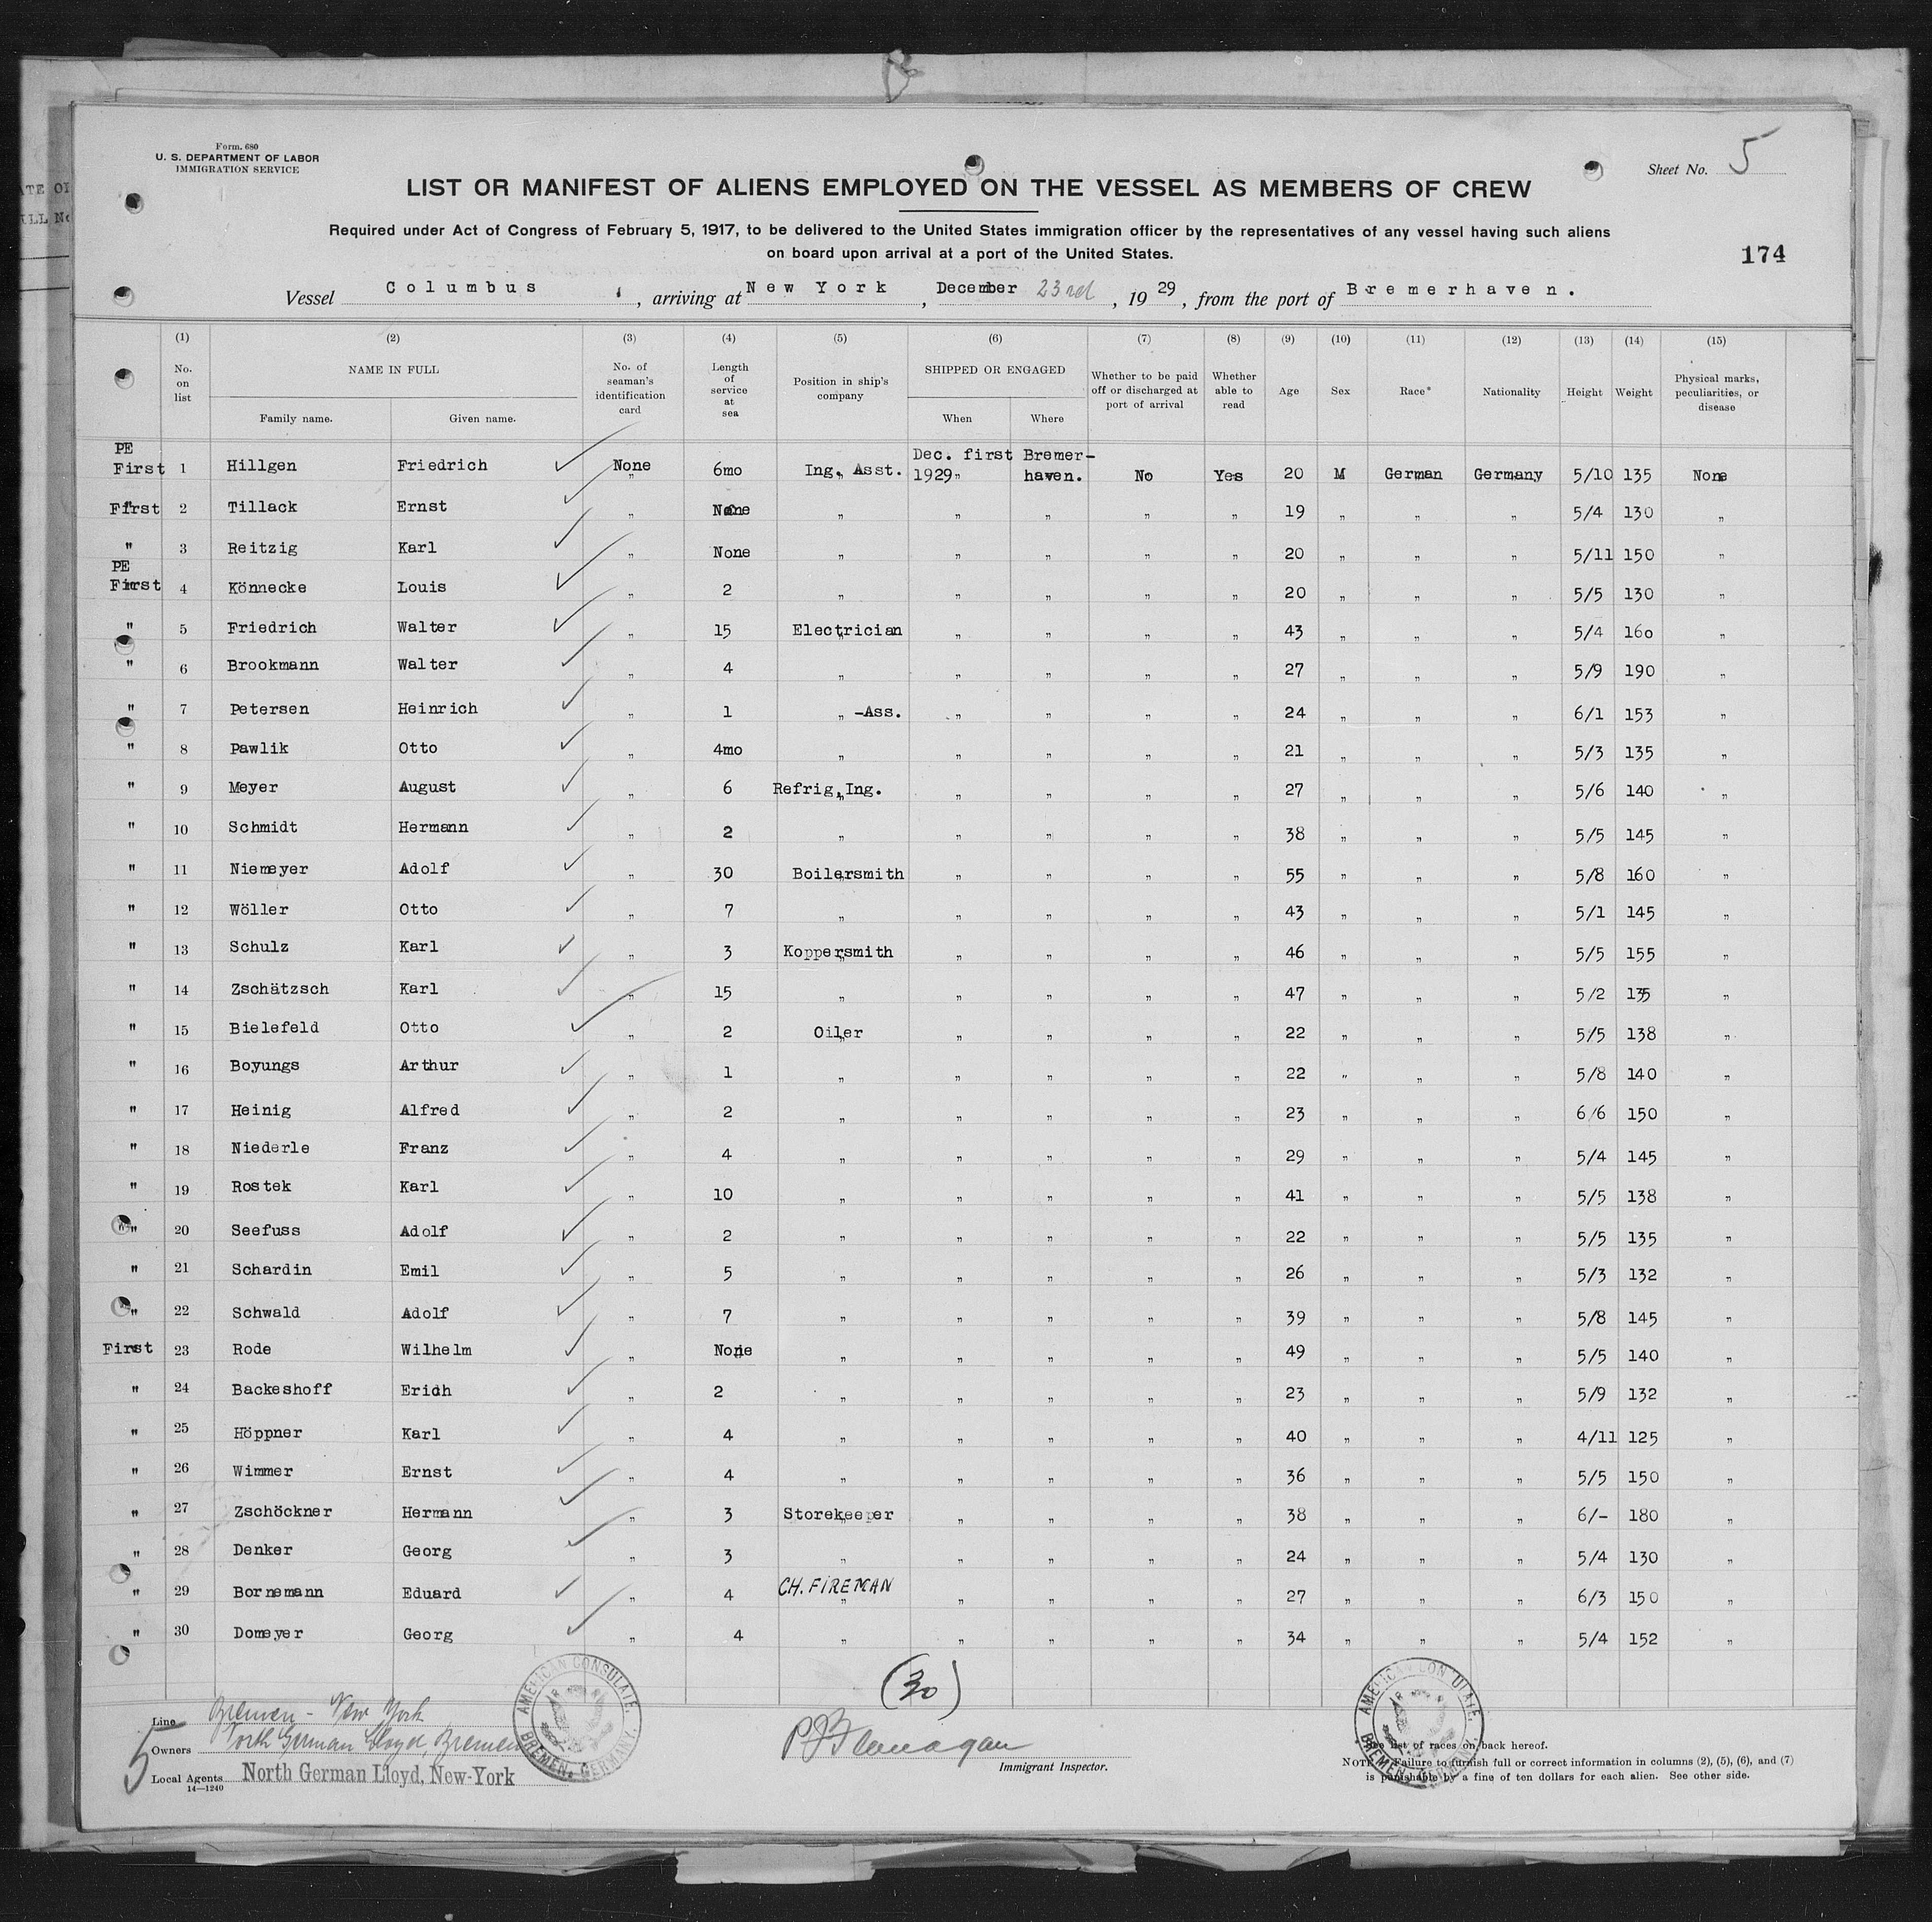 Form. 680
U. S. DEPARTMENT OF LABOR
IMMIGRATION SERVICE
Sheet No. 5
LIST OR MANIFEST OF ALIENS EMPLOYED ON THE VESSEL AS MEMBERS OF CREW
Required under Act of Congress of February 5, 1917, to be delivered to the United States immigration officer by the representatives of any vessel having such aliens
on board upon arrival at a port of the United States.
174
Vessel Columbus, arriving at New York, December 23rd, 1929, from the port of Bremerhaven.
(1) (2) (3) (4) (5) (6) (7) (8) (9) (10) (11) (12) (13) (14) (15)
No. on list NAME IN FULL Family name. Given name. No. of seaman's identification card Length of service at sea Position in ship's company SHIPPED OR ENGAGED When Where Whether to be paid off or discharged at port of arrival Whether able to read Age Sex Race* Nationality Height Weight Physical marks, peculiarities, or disease
PE First 1 Hillgen Friedrich None 6mo Ing. Asst. Dec. first 1929 Bremer-haven. No Yes 20 M German Germany 5/10 135 None
First 2 Tillack Ernst " None " " " " " 19 " " " 5/4 130 "
" 3 Reitzig Karl " None " " " " " 20 " " " 5/11 150 "
PE First 4 Könnecke Louis " 2 " " " " " 20 " " " 5/5 130 "
" 5 Friedrich Walter " 15 Electrician " " " " 43 " " " 5/4 160 "
" 6 Brookmann Walter " 4 " " " " " 27 " " " 5/9 190 "
" 7 Petersen Heinrich " 1 " -Ass. " " " " 24 " " " 6/1 153 "
" 8 Pawlik Otto " 4mo " " " " " 21 " " " 5/3 135 "
" 9 Meyer August " 6 Refrig.Ing. " " " " 27 " " " 5/6 140 "
" 10 Schmidt Hermann " 2 " " " " " 38 " " " 5/5 145 "
" 11 Niemeyer Adolf " 30 Boilersmith " " " " 55 " " " 5/8 160 "
" 12 Wöller Otto " 7 " " " " " 43 " " " 5/1 145 "
" 13 Schulz Karl " 3 Koppersmith " " " " 46 " " " 5/5 155 "
" 14 Zschätzsch Karl " 15 " " " " " 47 " " " 5/2 135 "
" 15 Bielefeld Otto " 2 Oiler " " " " 22 " " " 5/5 138 "
" 16 Boyungs Arthur " 1 " " " " " 22 " " " 5/8 140 "
" 17 Heinig Alfred " 2 " " " " " 23 " " " 6/6 150 "
" 18 Niederle Franz " 4 " " " " " 29 " " " 5/4 145 "
" 19 Rostek Karl " 10 " " " " " 41 " " " 5/5 138 "
" 20 Seefuss Adolf " 2 " " " " " 22 " " " 5/5 135 "
" 21 Schardin Emil " 5 " " " " " 26 " " " 5/3 132 "
" 22 Schwald Adolf " 7 " " " " " 39 " " " 5/8 145 "
First 23 Rode Wilhelm " None " " " " " 49 " " " 5/5 140 "
" 24 Backeshoff Erich " 2 " " " " " 23 " " " 5/9 132 "
" 25 Höppner Karl " 4 " " " " " 40 " " " 4/11 125 "
" 26 Wimmer Ernst " 4 " " " " " 36 " " " 5/5 150 "
" 27 Zschöckner Hermann " 3 Storekeeper " " " " 38 " " " 6/- 180 "
" 28 Denker Georg " 3 " " " " " 24 " " " 5/4 130 "
" 29 Bornemann Eduard " 4 CH. FIREMAN " " " " 27 " " " 6/3 150 "
" 30 Domeyer Georg " 4 " " " " " 34 " " " 5/4 152 "
(30)
Line Bremen - New York
Owners North German Lloyd, Bremen
5
Local Agents North German Lloyd, New-York
14—1240
AMERICAN CONSULATE, BREMEN, GERMANY.
P J Flannagan
Immigrant Inspector.
AMERICAN CONSULATE, BREMEN, GERMANY.
*See list of races on back hereof.
NOTE.—Failure to furnish full or correct information in columns (2), (5), (6), and (7)
is punishable by a fine of ten dollars for each alien. See other side.